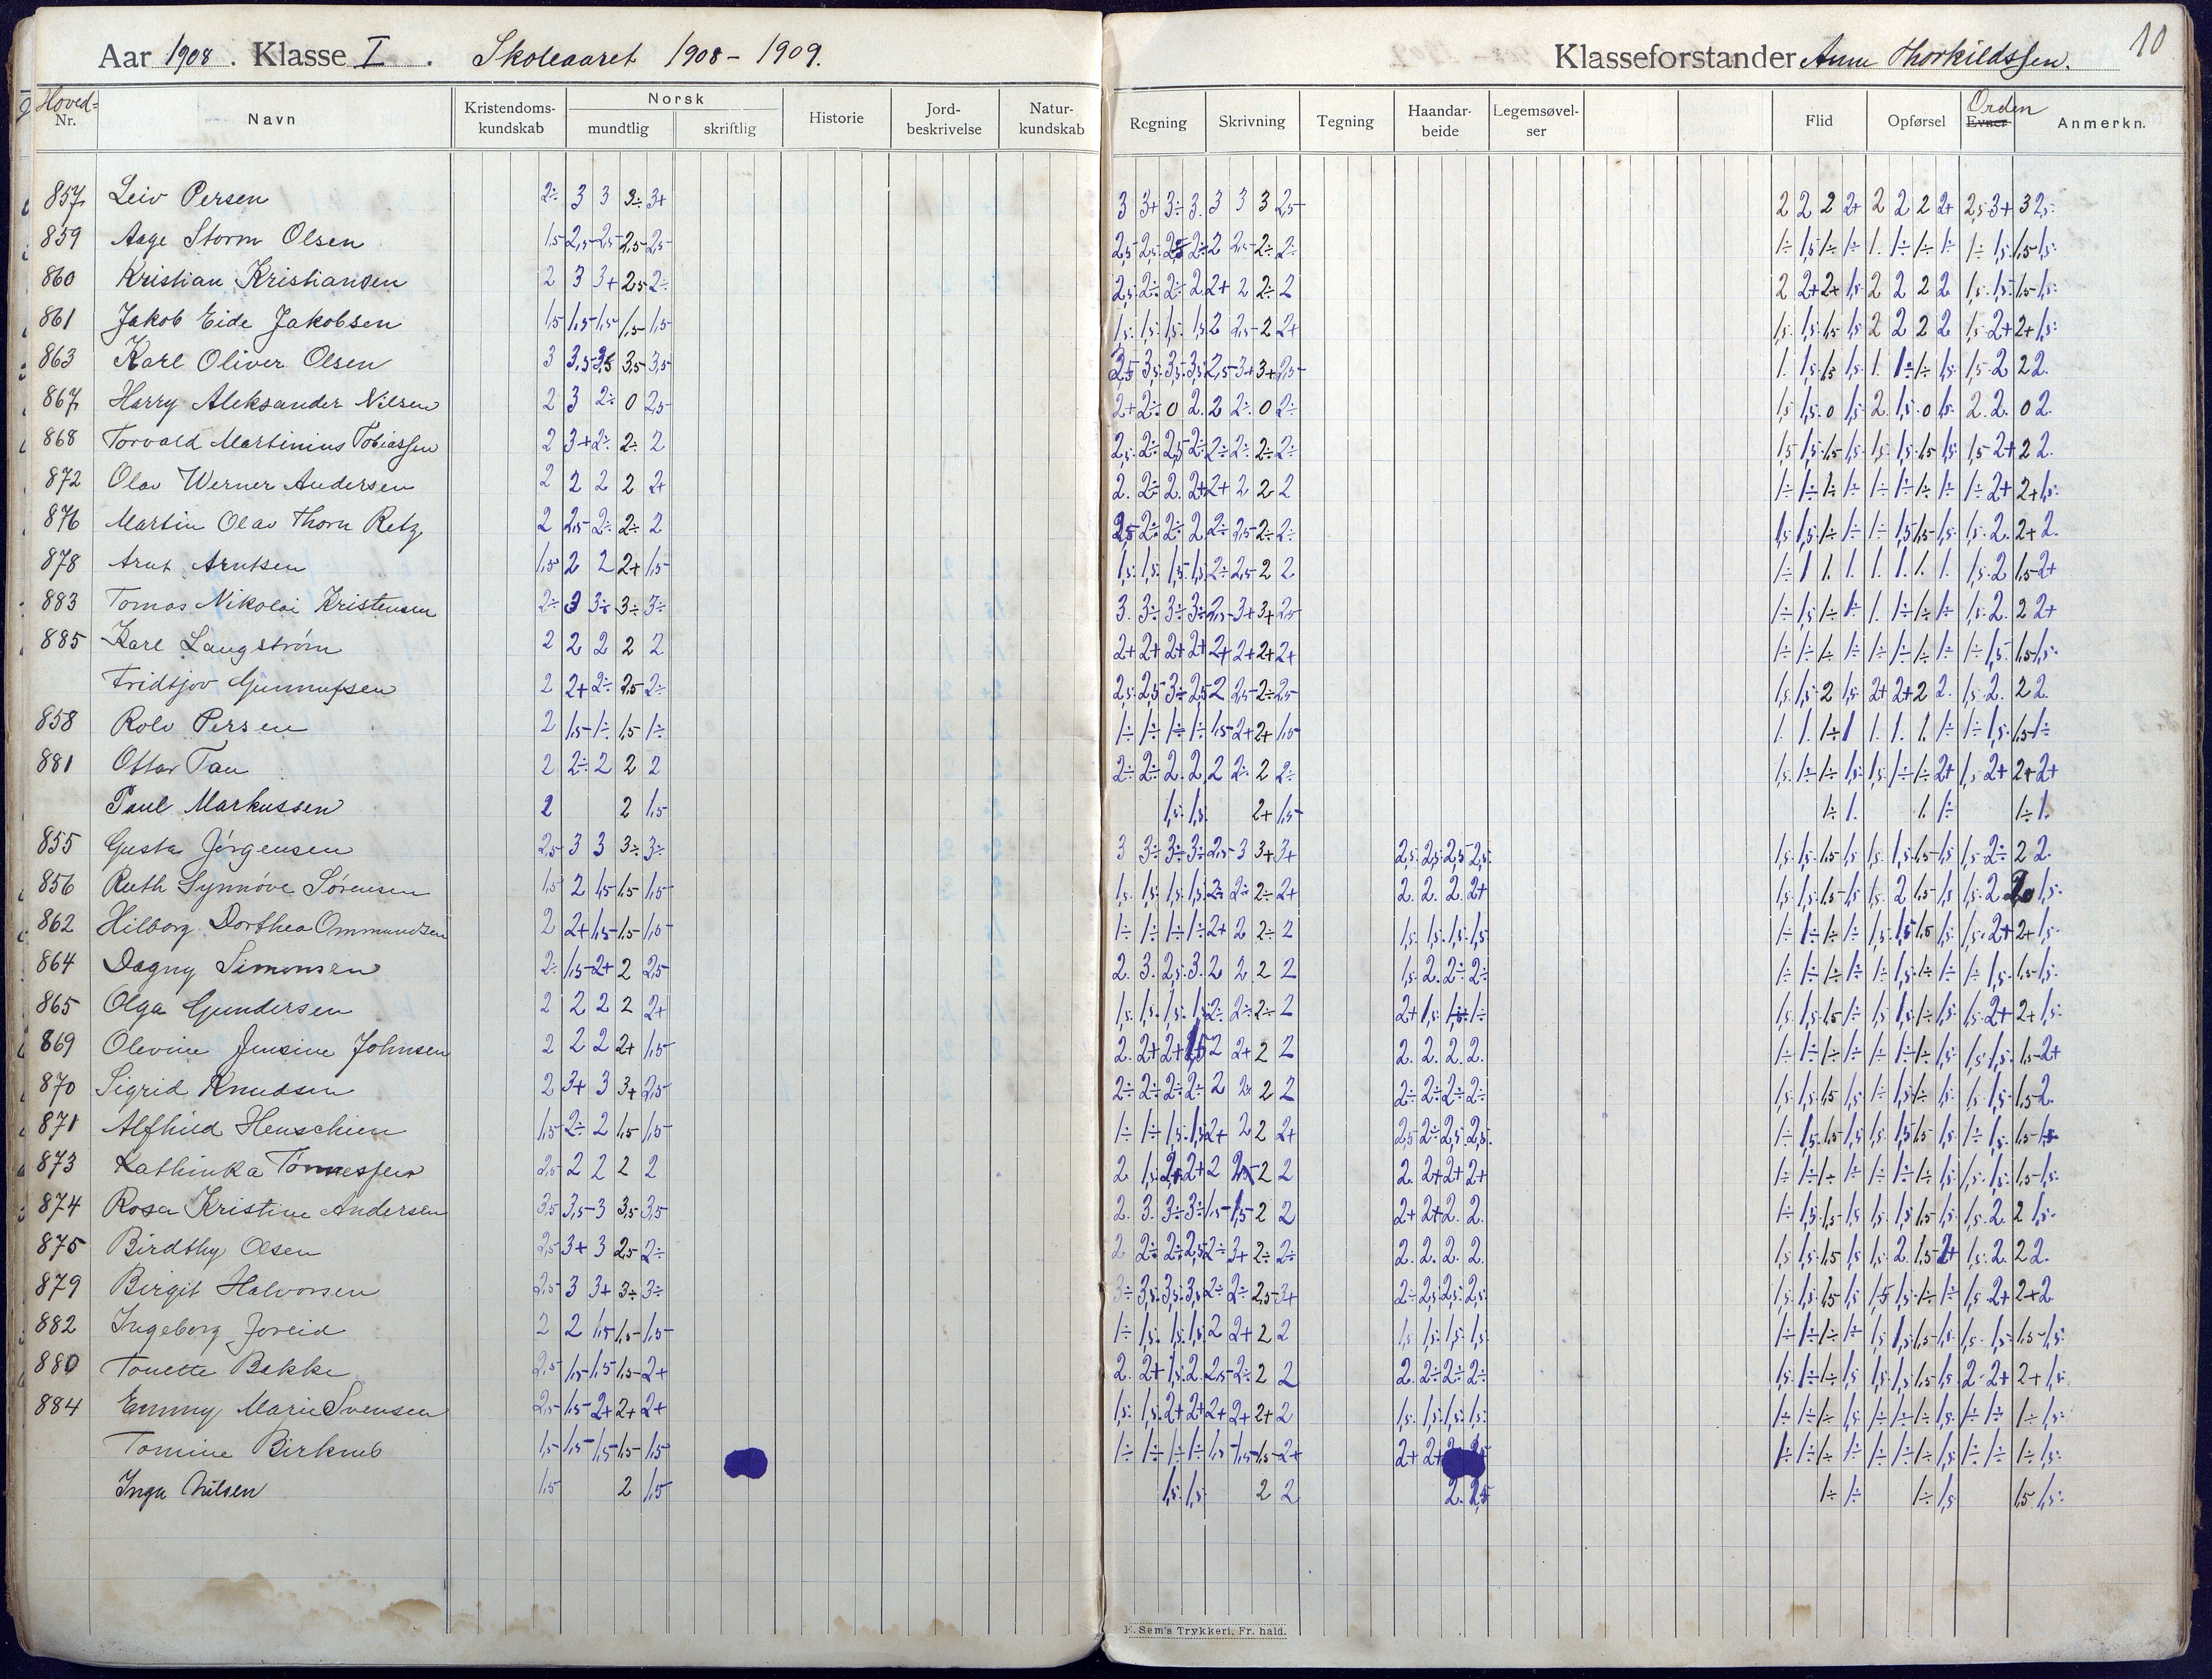 Aar 1908. Klasse I. Skoleaaret 1908-1909. Klasseforstander Anna Thorkildssen. 10
Hoved-Nr. Navn Kristendoms-kundskab Norsk mundtlig skriftlig Historie Jord-beskrivelse Natur-kundskab Regning Skrivning Tegning Haandar-beide Legemsøvel-ser Flid Opførsel Orden Evner Anmerkn.
857 Leiv Persen 2÷ 3 3 3÷ 3+ 3 3+ 3÷ 3. 3 3 3 2,5 2 2 2 2+ 2 2 2 2+ 2,5 3+ 3 2,5
859 Aage Storm Olsen 1,5 2,5 2,5 2,5 2,5
860 Kristian Kristiansen 2 3 3+ 2,5 2÷ 2,5 2÷ 2÷ 2. 2+ 2 2÷ 2 2 2+ 2+ 1,5 2 2 2 2 1,5 1,5 1,5 1,5
861 Jakob Eide Jakobsen 1,5 1,5 1,5 1,5 1,5 1,5 1,5 1,5 1,5 2 2,5 2 2+ 1,5 1,5 1,5 1,5 2 2 2 2 1,5 2+ 2+ 1,5
863 Karl Oliver Olsen 3 3,5 3,5 3,5 3,5 3,5 3,5 3,5 3,5 2,5 3+ 3+ 2,5 1. 1,5 1,5 1,5 1. 1÷ 1÷ 1,5 1,5 2 2 2.
867 Harry Aleksander Nilsen 2 3 2÷ 0 2,5 2+ 2÷ 0 2. 2 2÷ 0 2÷ 1,5 1,5 0 1,5 2. 1,5 0 1,5 2. 2. 0 2.
868 Torvald Martinius Tobiassen 2 3+ 2÷ 2÷ 2 2,5 2÷ 2,5 2÷ 2÷ 2÷ 2÷ 2÷ 1,5 1,5 1,5 1,5 1,5 1,5 1,5 1,5 1,5 2+ 2 2.
872 Olav Werner Andersen 2 2 2 2 2+ 2. 2÷ 2. 2+ 2+ 2 2 2 1÷ 1÷ 1÷ 1÷ 1÷ 1÷ 1÷ 1÷ 1÷ 2+ 2+ 1,5
876 Martin Olav Thorn Retz 2 2,5 2÷ 2÷ 2 2,5 2÷ 2÷ 2 2÷ 2,5 2÷ 2÷ 1,5 1,5 1÷ 1÷ 1÷ 1,5 1,5 1,5 1,5 2. 2+ 2.
878 Arnt Arntsen 1,5 2 2 2+ 1,5 1,5 1,5 1,5 1,5 2÷ 2,5 2 2 1÷ 1 1. 1. 1. 1. 1. 1. 1,5 2 1,5 2+
883 Tomas Nikolai Kristensen 2÷ 3 3÷ 3÷ 3÷ 3. 3÷ 3÷ 3÷ 2,5 3+ 3+ 2,5 1÷ 1,5 1÷ 1÷ 1. 1÷ 1÷ 1÷ 1,5 2. 2 2+
885 Karl Langstrøm 2 2 2 2 2 2+ 2+ 2+ 2+ 2+ 2+ 2+ 2+ 1÷ 1÷ 1÷ 1÷ 1÷ 1÷ 1÷ 1÷ 1÷ 1,5 1,5 1,5
Fridtjov Gunnufsen 2 2+ 2÷ 2,5 2÷ 2,5 2,5 3÷ 2,5 2 2,5 2÷ 2,5 1,5 1,5 2 1,5 2+ 2+ 2 2. 1,5 2. 2 2.
858 Rolv Persen 2 1,5 1÷ 1,5 1÷ 1÷ 1÷ 1÷ 1÷ 1,5 2+ 2+ 1,5 1. 1. 1÷ 1 1. 1. 1. 1÷ 1÷ 1,5 1,5 1÷
881 Ottar Tau 2 2÷ 2 2 2 2÷ 2÷ 2. 2. 2 2÷ 2 2÷ 1,5 1÷ 1÷ 1,5 1,5 1÷ 1÷ 2+ 1,5 2+ 2+ 2+
Paul Markussen 2 2 1,5 1,5 1,5 2+ 1,5 1÷ 1. 1. 1÷ 1÷ 1.
855 Gusta Jørgensen 2,5 3 3 3÷ 3÷ 3 3÷ 3÷ 3÷ 2,5 3 3+ 3+ 2,5 2,5 2,5 2,5 1,5 1,5 1,5 1,5 1,5 1,5 1,5 1,5 1,5 2÷ 2 2.
856 Ruth Synnøve Sørensen 1,5 2 1,5 1,5 1,5 1,5 1,5 1,5 1,5 2÷ 2÷ 2÷ 2+ 2. 2. 2. 2+ 1,5 1,5 1,5 1,5 1,5 2 1,5 1,5 1,5 2 1,5
862 Hilborg Dorthea Ommundsen 2 2+ 1,5 1,5 1,5 1÷ 1÷ 1÷ 1÷ 2+ 2 2÷ 2 1,5 1,5 1,5 1,5 1÷ 1÷ 1÷ 1÷ 1,5 1,5 1,5 1,5 1,5 2+ 2+ 1,5
864 Dagny Simonsen 2÷ 1,5 2+ 2 2,5 2. 3. 2,5 3. 2 2 2 2 1,5 2. 2÷ 2÷ 1÷ 1÷ 1÷ 1÷ 1÷ 1,5 1÷ 1÷ 1÷ 1,5 1,5 1,5
865 Olga Gundersen 2 2 2 2 2+ 1,5 1,5 1,5 1,5 2÷ 2÷ 2÷ 2 2+ 1,5 1÷ 1÷ 1,5 1,5 1,5 1÷ 1,5 1,5 1÷ 1,5 1,5 2+ 2+ 1,5
869 Olevine Jensine Johnsen 2 2 2 2+ 1,5 2. 2+ 2+ 1,5 2 2+ 2 2 2. 2. 2. 2. 1÷ 1÷ 1÷ 1÷ 1÷ 1÷ 1÷ 1,5 1,5 1,5 1,5 2+
870 Sigrid Knudsen 2 3+ 3 3+ 2,5 2÷ 2÷ 2÷ 2÷ 2 2÷ 2 2 2÷ 2÷ 2÷ 2÷ 1,5 1,5 1,5 1,5 1÷ 1,5 1÷ 1,5 1,5 1,5 1,5 2.
871 Alfhild Henschien 1,5 2÷ 2 1,5 1,5 1÷ 1÷ 1,5 1,5 2+ 2 2 2+ 2,5 2÷ 2,5 2,5 1÷ 1,5 1,5 1,5 1,5 1,5 1,5 1,5 1÷ 1,5 1,5 1,5
873 Kathinka Tønnessen 2,5 2 2 2 2 2. 1,5 2+ 2+ 2 2 2 2. 2+ 2+ 2+ 1÷ 1÷ 1÷ 1÷ 1÷ 1÷ 1÷ 1÷ 1,5 1,5 1,5 1,5
874 Rosa Kristine Andersen 3,5 3,5 3 3,5 3,5 2. 3. 3÷ 3÷ 1,5 1,5 2 2 2+ 2+ 2. 2. 1÷ 1,5 1,5 1,5 1,5 1,5 1,5 1,5 1,5 2. 2 1,5
875 Birdthy Olsen 2,5 3+ 3 2,5 2÷ 2 2÷ 2÷ 2,5 2÷ 3+ 2÷ 2÷ 2. 2. 2. 2. 1,5 1,5 1,5 1,5 1,5 2. 1,5 2+ 1,5 2. 2 2.
879 Birgit Halvorsen 2,5 3 3+ 3÷ 3÷ 3÷ 3,5 3,5 3,5 2÷ 2÷ 2,5 3+ 2÷ 2,5 2,5 2,5 1,5 1,5 1,5 1,5 1,5 1,5 1÷ 1÷ 1,5 2+ 2+ 2
882 Ingeborg Joreid 2 2 1,5 1,5 1,5 1÷ 1,5 1,5 1,5 2 2+ 2 2 1,5 1,5 1,5 1,5 1÷ 1÷ 1÷ 1÷ 1,5 1,5 1,5 1,5 1,5 1,5 1,5 1,5
880 Tonette Bakke 2,5 1,5 1,5 1,5 2+ 2. 2+ 1,5 2. 2,5 2÷ 2 2 2. 2÷ 2÷ 2÷ 1,5 1÷ 1÷ 1,5 1,5 1,5 1,5 1,5 2. 2+ 2+ 1,5
884 Emmy Marie Svensen 2,5 1,5 2+ 2+ 2+ 1,5 1,5 2+ 2+ 2+ 2+ 2+ 2 1,5 1,5 1,5 1,5 1÷ 1÷ 1÷ 1,5 1÷ 1÷ 1÷ 1,5 1÷ 1÷ 1÷ 1,5
Tomine 1,5 1,5 1,5 1,5 1,5 1÷ 1÷ 1÷ 1÷ 1,5 1,5 1,5 2+ 2+ 2+ 1÷ 1÷ 1÷ 1÷ 1÷ 1÷ 1÷ 1,5 1÷ 1÷ 1÷ 1,5
Inga Nilsen 1,5 2 1,5 1,5 1,5 2 2 2. 2,5 1÷ 1÷ 1÷ 1,5 1,5 1,5
E. Sem's Trykkeri, Fr. hald.